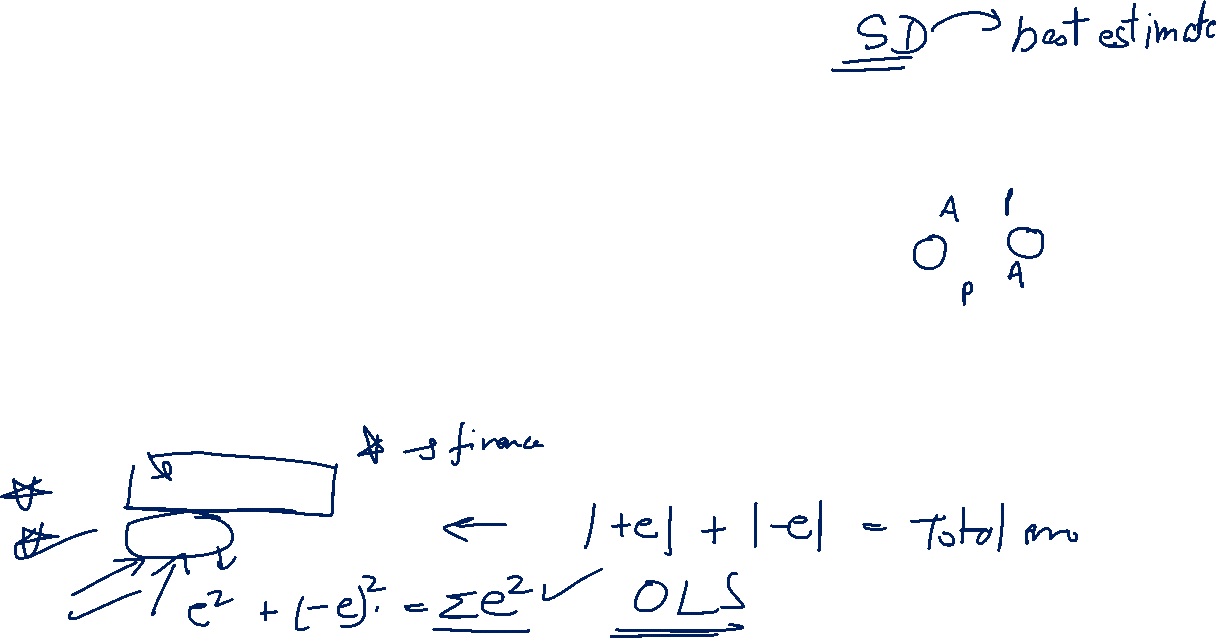 SD → best estimate
A P
P A
→ finance
← |+e| + |-e| = Total
e² + (-e)² = Σe² ✓ OLS